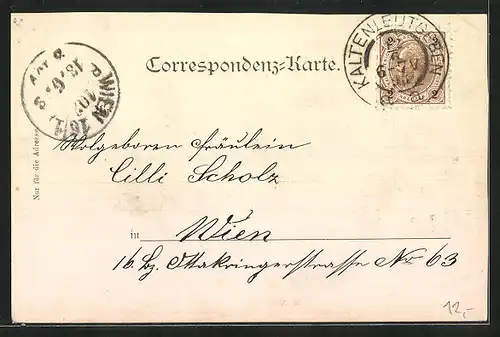 Correspondenz-Karte.
KALTENLEUTGEBEN
WIEN
Nur für die Adresse
Wolgeboren Fräulein
Cilli Scholz
in Wien
16 Bz. Ottakringerstrasse No 63
12,-